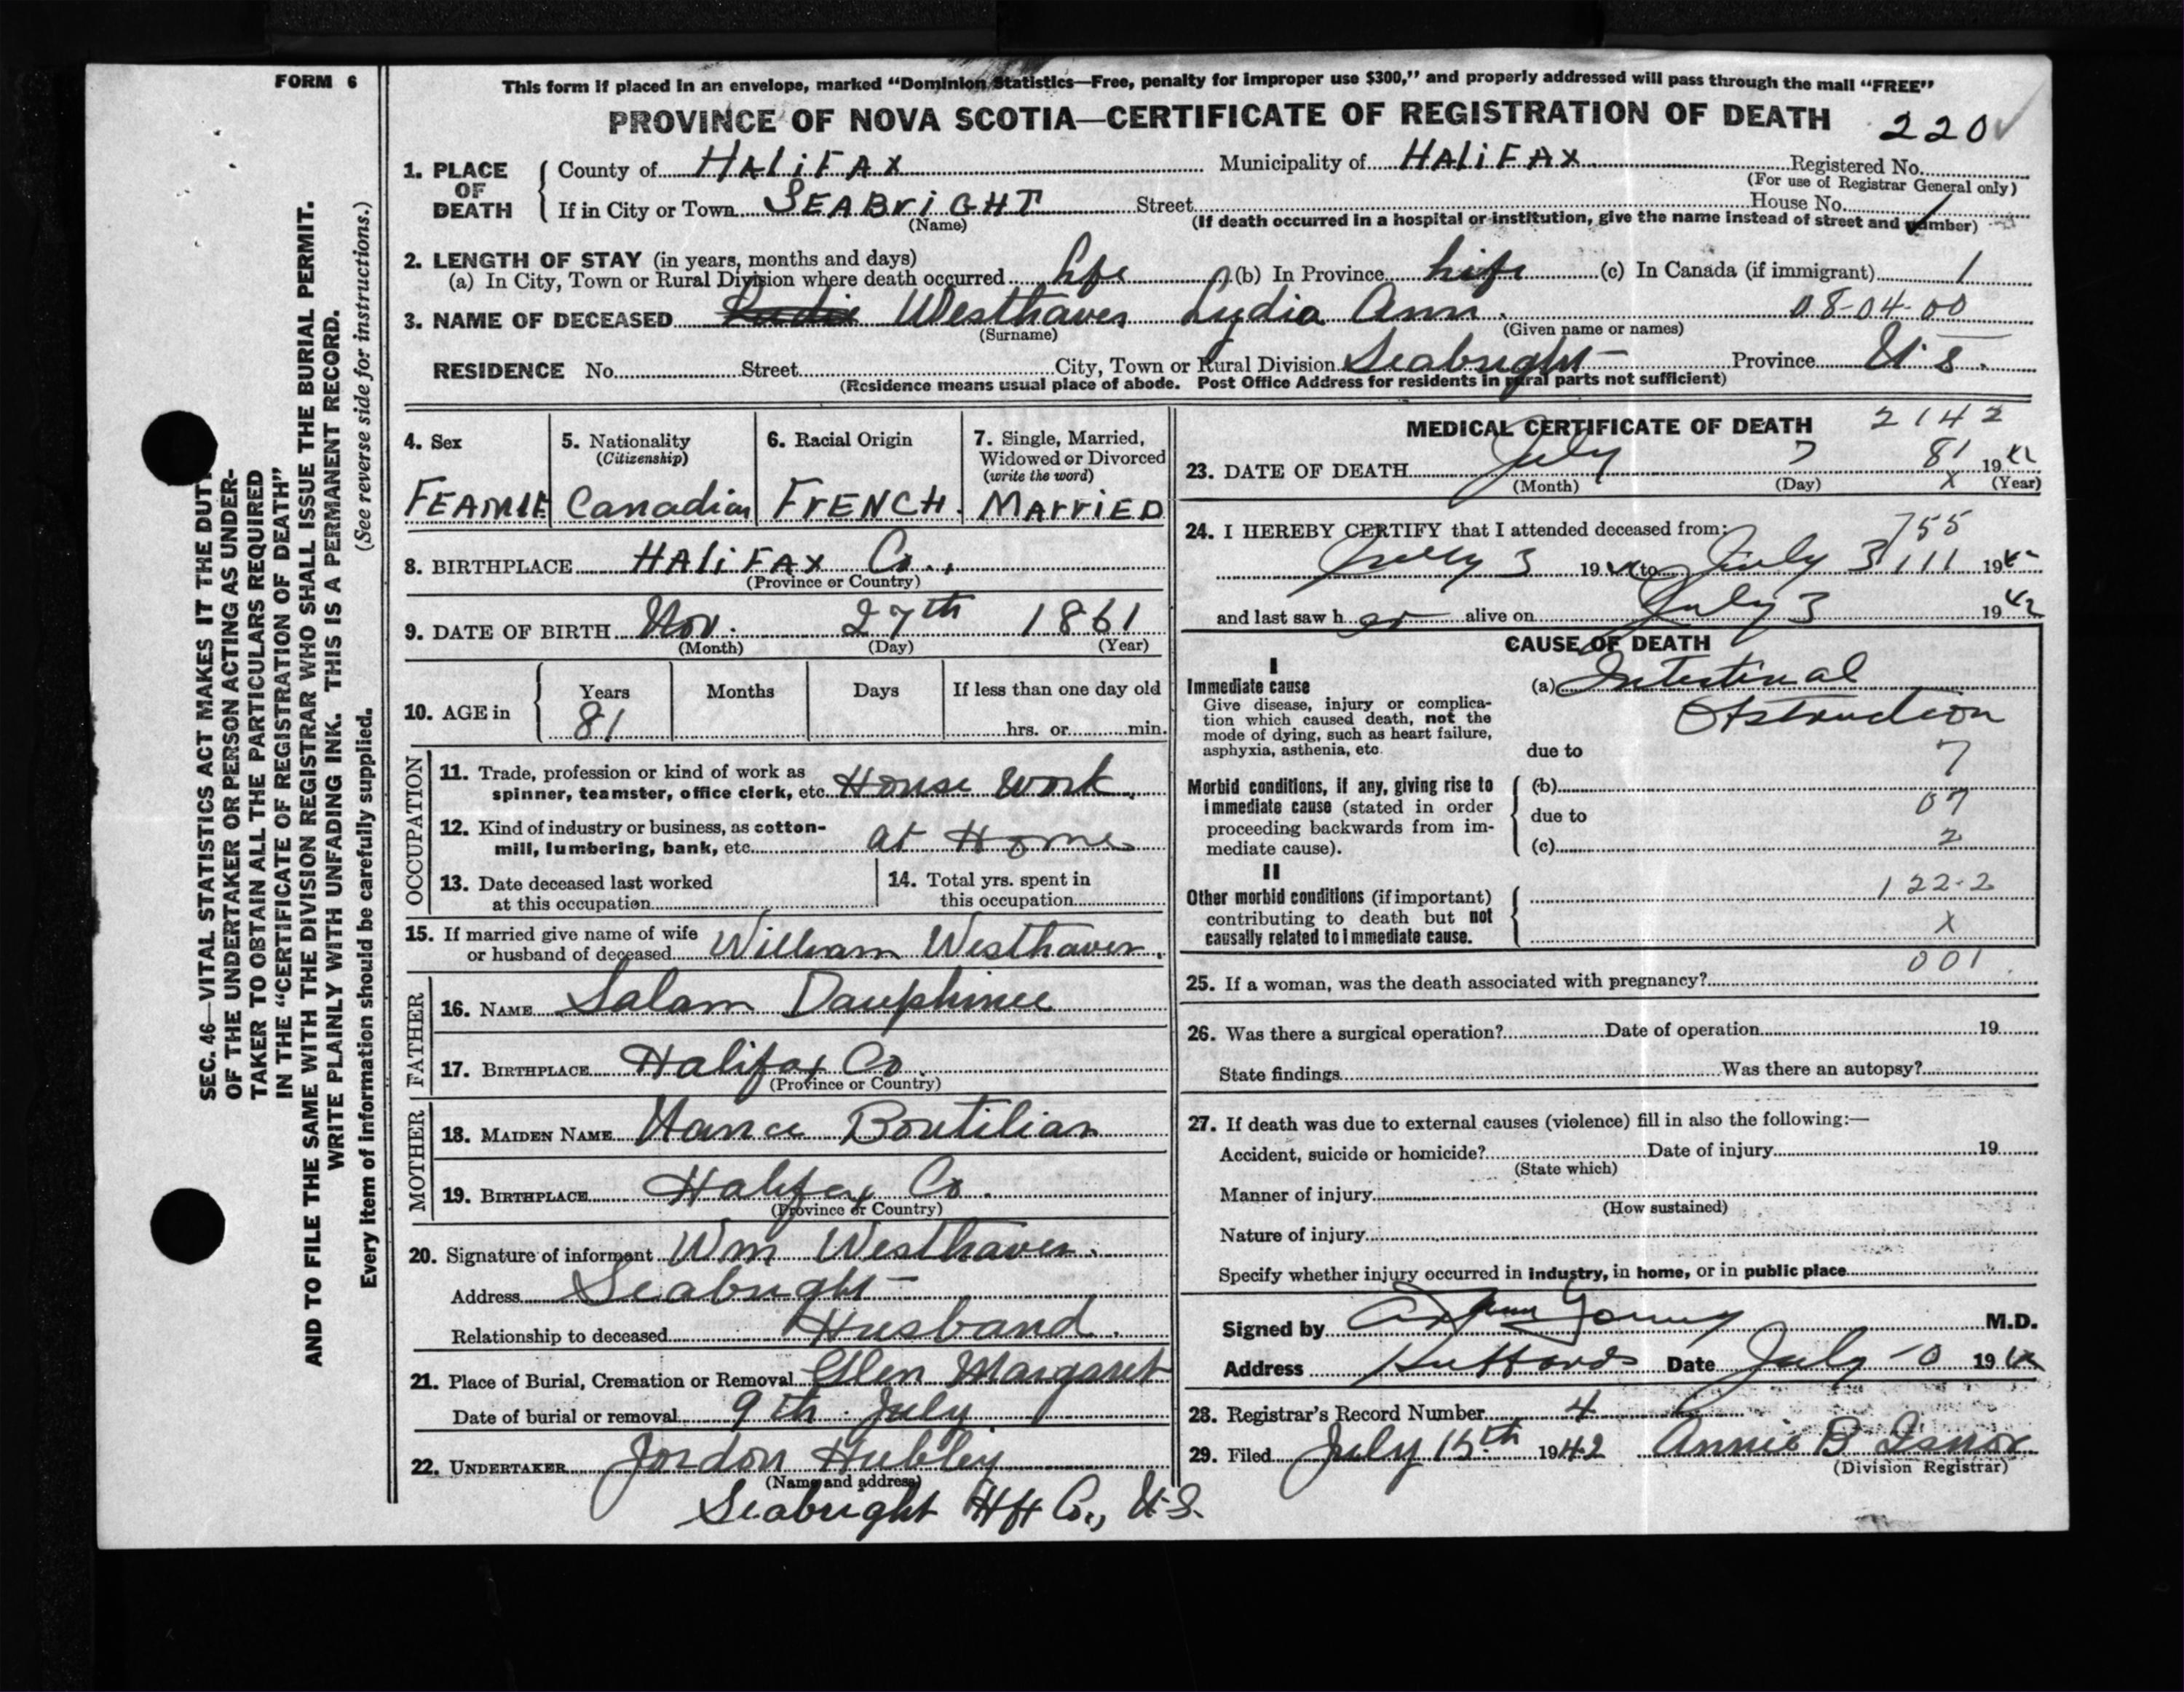 FORM 6
SEC. 46—VITAL STATISTICS ACT MAKES IT THE DUTY
OF THE UNDERTAKER OR PERSON ACTING AS UNDER-
TAKER TO OBTAIN ALL THE PARTICULARS REQUIRED
IN THE "CERTIFICATE OF REGISTRATION OF DEATH"
AND TO FILE THE SAME WITH THE DIVISION REGISTRAR WHO SHALL ISSUE THE BURIAL PERMIT.
WRITE PLAINLY WITH UNFADING INK. THIS IS A PERMANENT RECORD.
Every item of information should be carefully supplied. (See reverse side for instructions.)
This form if placed in an envelope, marked "Dominion Statistics—Free, penalty for improper use $300," and properly addressed will pass through the mail "FREE"
PROVINCE OF NOVA SCOTIA—CERTIFICATE OF REGISTRATION OF DEATH 220
1. PLACE OF DEATH County of HALiFAX Municipality of HALiFAX Registered No.
(For use of Registrar General only)
If in City or Town SEABriGHT Street House No.
(Name) (If death occurred in a hospital or institution, give the name instead of street and number)
2. LENGTH OF STAY (in years, months and days)
(a) In City, Town or Rural Division where death occurred life (b) In Province life (c) In Canada (if immigrant) 1
3. NAME OF DECEASED Westhaver Lydia Ann. 08-04-00
(Surname) (Given name or names)
RESIDENCE No. Street City, Town or Rural Division Seabright Province N.S.
(Residence means usual place of abode. Post Office Address for residents in rural parts not sufficient)
4. Sex 5. Nationality (Citizenship) 6. Racial Origin 7. Single, Married, Widowed or Divorced (write the word)
FEAMLE Canadian FrENCH. MArriED
8. BIRTHPLACE HALiFAX Co.,
(Province or Country)
9. DATE OF BIRTH Nov. 27th 1861
(Month) (Day) (Year)
10. AGE in Years Months Days If less than one day old
81 hrs. or min.
OCCUPATION
11. Trade, profession or kind of work as
spinner, teamster, office clerk, etc. House Work.
12. Kind of industry or business, as cotton-
mill, lumbering, bank, etc. at Home
13. Date deceased last worked
at this occupation
14. Total yrs. spent in
this occupation
15. If married give name of wife
or husband of deceased William Westhaver.
FATHER
16. NAME Salam Dauphinee
17. BIRTHPLACE Halifax Co.
(Province or Country)
MOTHER
18. MAIDEN NAME Nance Boutilier
19. BIRTHPLACE Halifax Co.
(Province or Country)
20. Signature of informant Wm Westhaver.
Address Seabright
Relationship to deceased Husband.
21. Place of Burial, Cremation or Removal Glen Margaret
Date of burial or removal 9th July
22. UNDERTAKER Jordon Hubley
(Name and address)
Seabright Hfx Co., N.S.
MEDICAL CERTIFICATE OF DEATH 2142
23. DATE OF DEATH July 7 81 1942
(Month) (Day) X (Year)
24. I HEREBY CERTIFY that I attended deceased from: 755
July 3 1942 to July 3 111 1942
and last saw her alive on July 3 1942
CAUSE OF DEATH
I
Immediate cause
Give disease, injury or complica-
tion which caused death, not the
mode of dying, such as heart failure,
asphyxia, asthenia, etc.
(a) Intestinal
Obstruction
due to 7
Morbid conditions, if any, giving rise to
immediate cause (stated in order
proceeding backwards from im-
mediate cause).
(b)
due to 07
(c) 2
II
Other morbid conditions (if important)
contributing to death but not
causally related to immediate cause.
122-2
X
001
25. If a woman, was the death associated with pregnancy?
26. Was there a surgical operation? Date of operation 19
State findings Was there an autopsy?
27. If death was due to external causes (violence) fill in also the following:—
Accident, suicide or homicide? Date of injury 19
(State which)
Manner of injury
(How sustained)
Nature of injury
Specify whether injury occurred in industry, in home, or in public place
Signed by Young M.D.
Address Hubbards Date July 10 1942
28. Registrar's Record Number 4
29. Filed July 15th 1942 Annie B
(Division Registrar)